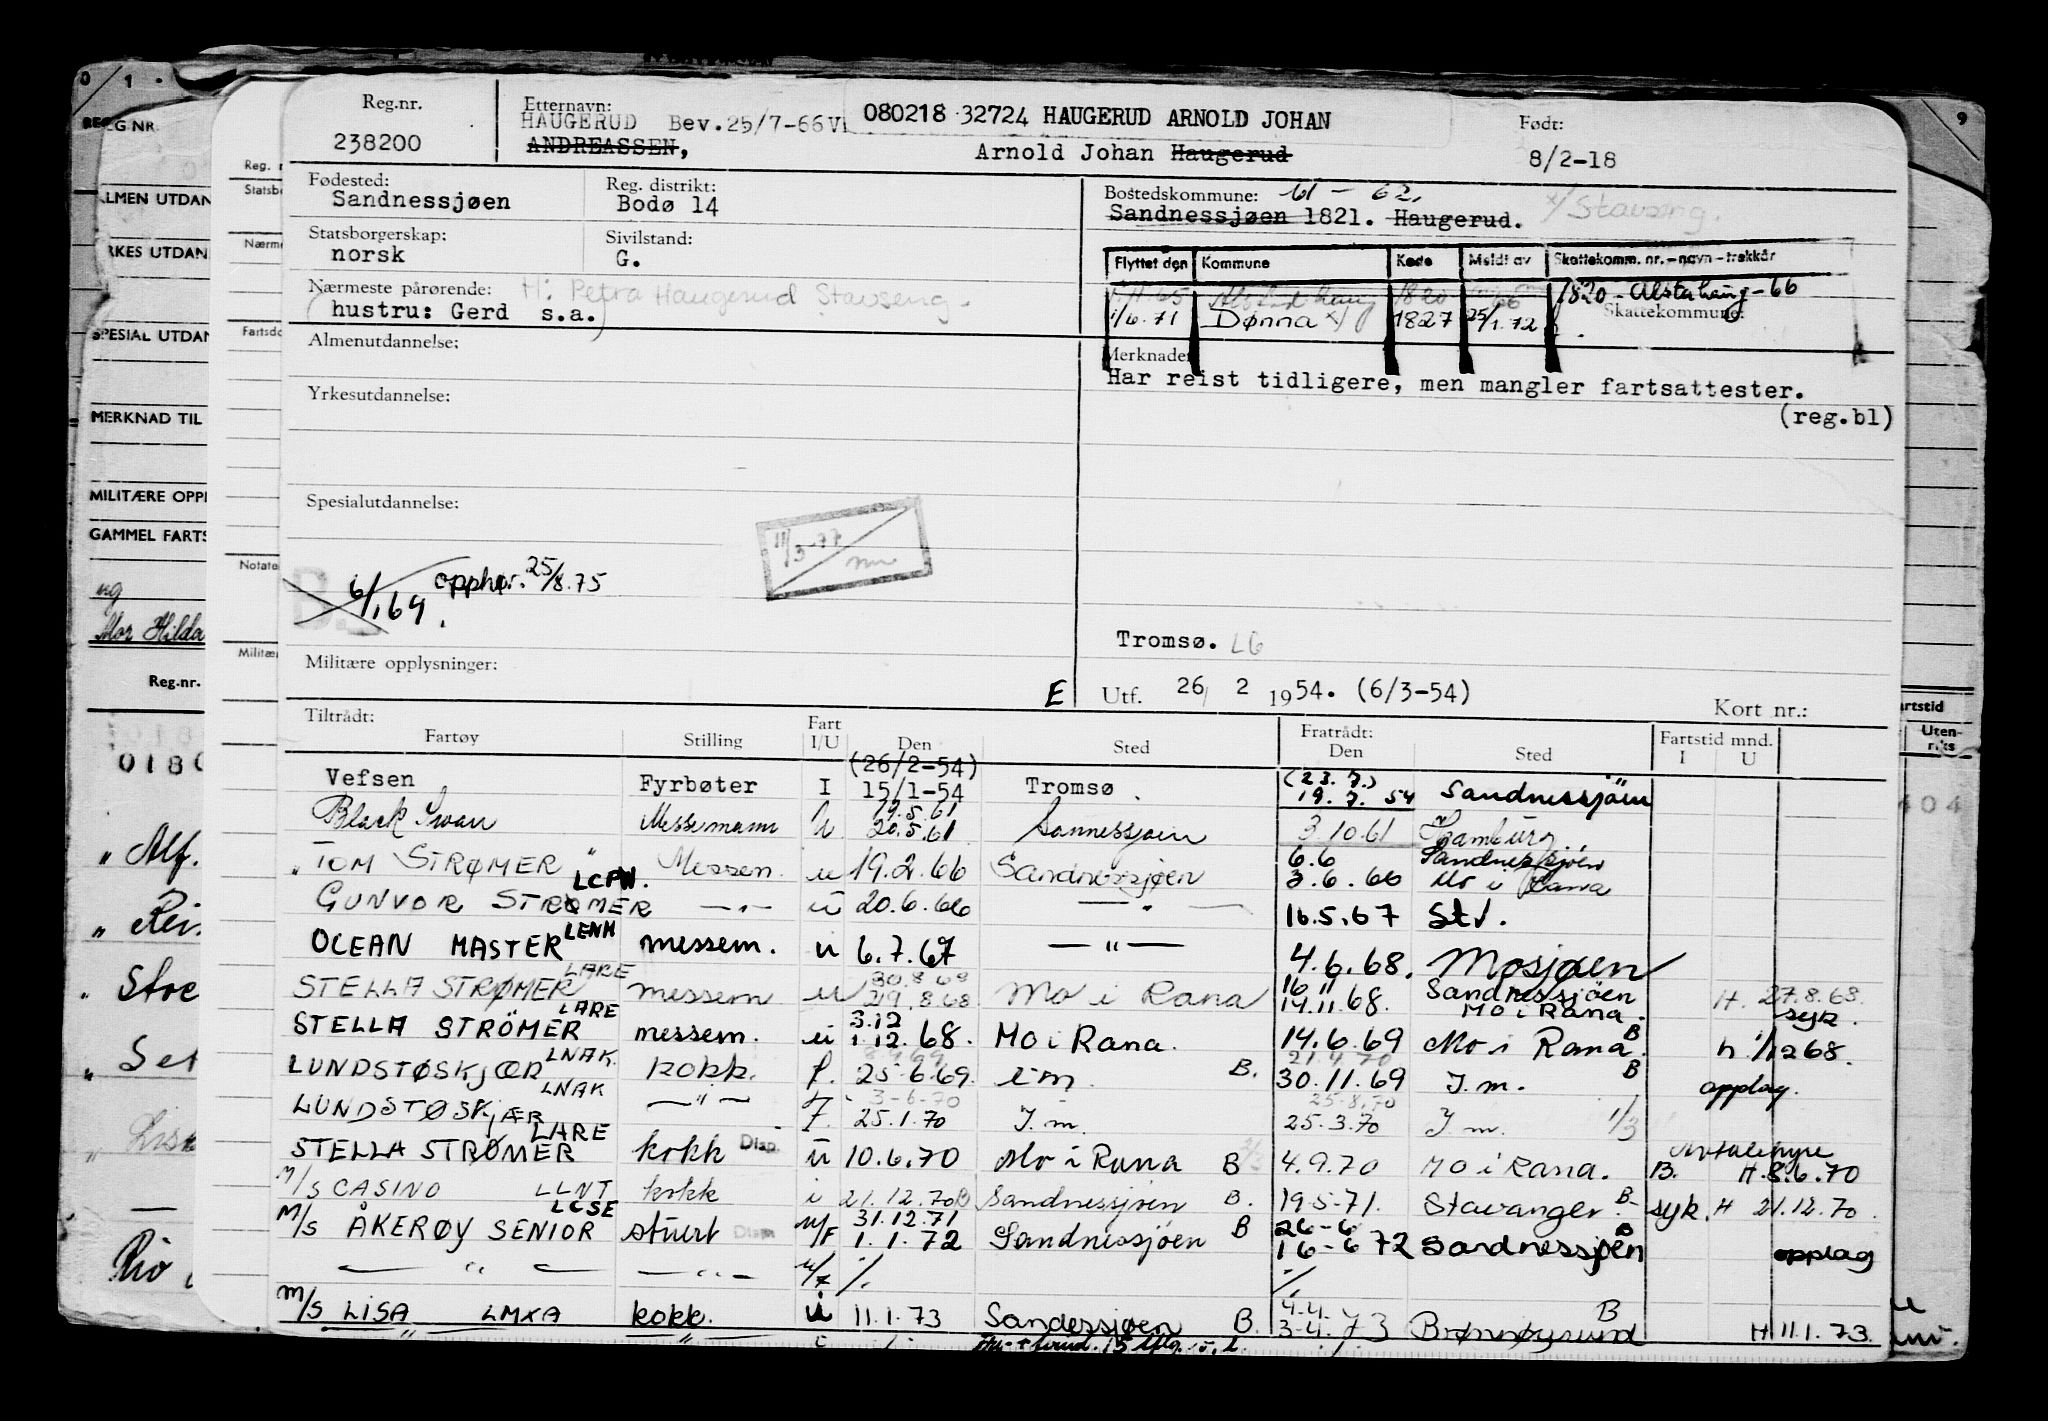 Reg.nr. 238200
Etternavn: HAUGERUD Bev. 25/7-66
080218 32724 HAUGERUD ARNOLD JOHAN
ANDREASSEN, Arnold Johan Haugerud
Født: 8/2-18
Fødested: Sandnessjøen
Reg. distrikt: Bodø 14
Bostedskommune: 61 - 62.
Sandnessjøen 1821. Haugerud. x/ Stavseng.
Statsborgerskap: norsk
Sivilstand: G.
Flyttet den Kommune Kode Meldt av Skattekomm. nr.-navn-trekkår
1820 1820-Alstahaug-66
1/6.71 Dønna x/ 1827 25/1.72
Skattekommune:
Nærmeste pårørende: H: Petra Haugerud Stavseng.
(hustru: Gerd s.a.)
Almenutdannelse:
Merknader
Har reist tidligere, men mangler fartsattester.
(reg.bl)
Yrkesutdannelse:
Spesialutdannelse:
11/3-77
opphør. 25/8.75
Tromsø. LG
Militære opplysninger:
E Utf. 26/ 2 1954. (6/3-54)
Kort nr.:
Tiltrådt: Fartøy Stilling Fart I/U Den Sted Fratrådt: Den Sted Fartstid mnd. I U
(26/2-54) (23.7.)
Vefsen Fyrbøter I 15/1-54 Tromsø 19.7.54 Sandnessjøen
Black Swan Messemann U 20.5.61 Sannessjøen 3.10.61 Hamburg
6.6 Sandnessjøen
"TOM STRØMER" Messem. u 19.2.66 Sandnessjøen 3.6.66 Mo i Rana
LCPW.
GUNVOR STRØMER —"— u 20.6.66 —"— 16.5.67
LENM
OCEAN MASTER messem. u 6.7.67 —"— 4.6.68. Mosjøen
LARE 30.8.68 16 11 Sandnessjøen
STELLA STRØMER messem u 29.8.68 Mo i Rana 14.11.68. Mo i Rana. H. 27.8.68. syk.
LARE 3.12
STELLA STRÖMER messem. u 1.12.68. Mo i Rana. 14.6.69 Mo i Rana. B h. 1/1268.
LNAK 21.4.70
LUNDSTØSKJÆR kokk. f. 25.6.69. I m. B. 30.11.69 I.m. B opplag.
LNAK 3-6-70 25.8.70
LUNDSTØSKJÆR —"— F. 25.1.70 I.m. 25.3.70 I m. 1/3
LARE Avtalehyre
STELLA STRØMER kokk Disp. u 10.6.70 Mo i Rana B 4.9.70 Mo i Rana. B. H.8.6.70
M/S CASINO LLNT kokk i 21.12.70 Sandnessjøen B. 19.5-71. Stavanger B- syk. H 21.12.70.
LCSE 31.12.71 26-6 B
M/S ÅKERØY SENIOR stuert Disp u/F 1.1.72 Sandnessjøen B 16-6 72 Sandnessjøen opplag
— " — —"— u/F /. /.
4.4.
M/S LISA LMXA kokk. u 11.1.73 Sandessjøen B. 3-4.73 Brønnøysund B H 11.1.73.
REG NR.
ALMEN UTDAN
YRKES UTDAN
SPESIAL UTDAN
MERKNAD TIL
MILITÆRE OPPL
GAMMEL FARTS
ug
Mor Hilda
Reg.nr.
Statsbo
Nærme
Fartsdo
Notate
Militær
Reg.nr.
" Alf.
Sto
" Set
Rio
artstid
Uten-
riks
404